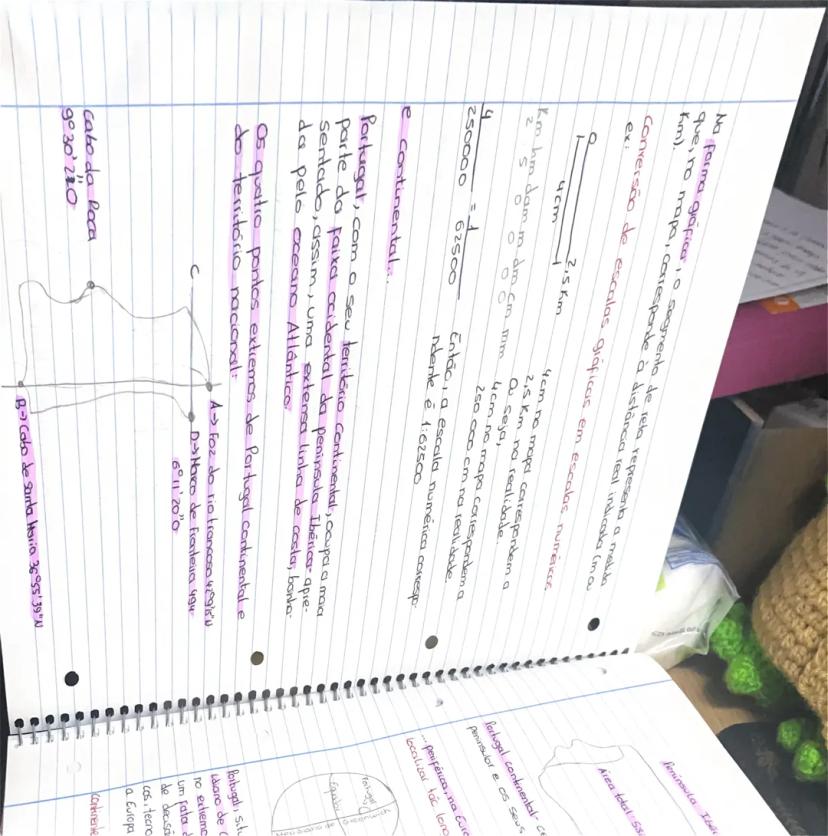 Na forma gráfica, o segmento de reta representa a medida
que, no mapa, corresponde à distância real indicada (m ou
Km).
Conversão de escalas gráficas em escalas numéricas
ex:
0 2,5 Km
4cm
4cm no mapa correspondem a
2,5 Km na realidade.
Km hm dam m dm cm mm
2 5 0 0 0 0
Ou seja,
4cm no mapa correspondem a
250 000 cm na realidade.
4/250000 = 1/62500
Então, a escala numérica correspo-
ndente é 1:62500
e continental...
Portugal, com o seu território continental, ocupa a maior
parte da faixa ocidental da península Ibérica apre-
sentado, assim, uma extensa linha de costa, banha-
da pelo oceano Atlântico.
Os quatro pontos extremos de Portugal continental e
do território nacional:
A→ Foz do rio trancoso
C
D→ Marco de Fronteira 494-
6º11'20"O
Cabo da Roca
9º30'2"O
B→ Cabo de Santa Maria 36º55'39"N
Península
Área total:
Portugal continental
península e os seus
... periférica, na Euro
localizar tão long
Portugal
Equador
Meridiano de Greenwich
Portugal, situ
no extremo
um fator d
de decisã
cos, tecno
a Europa